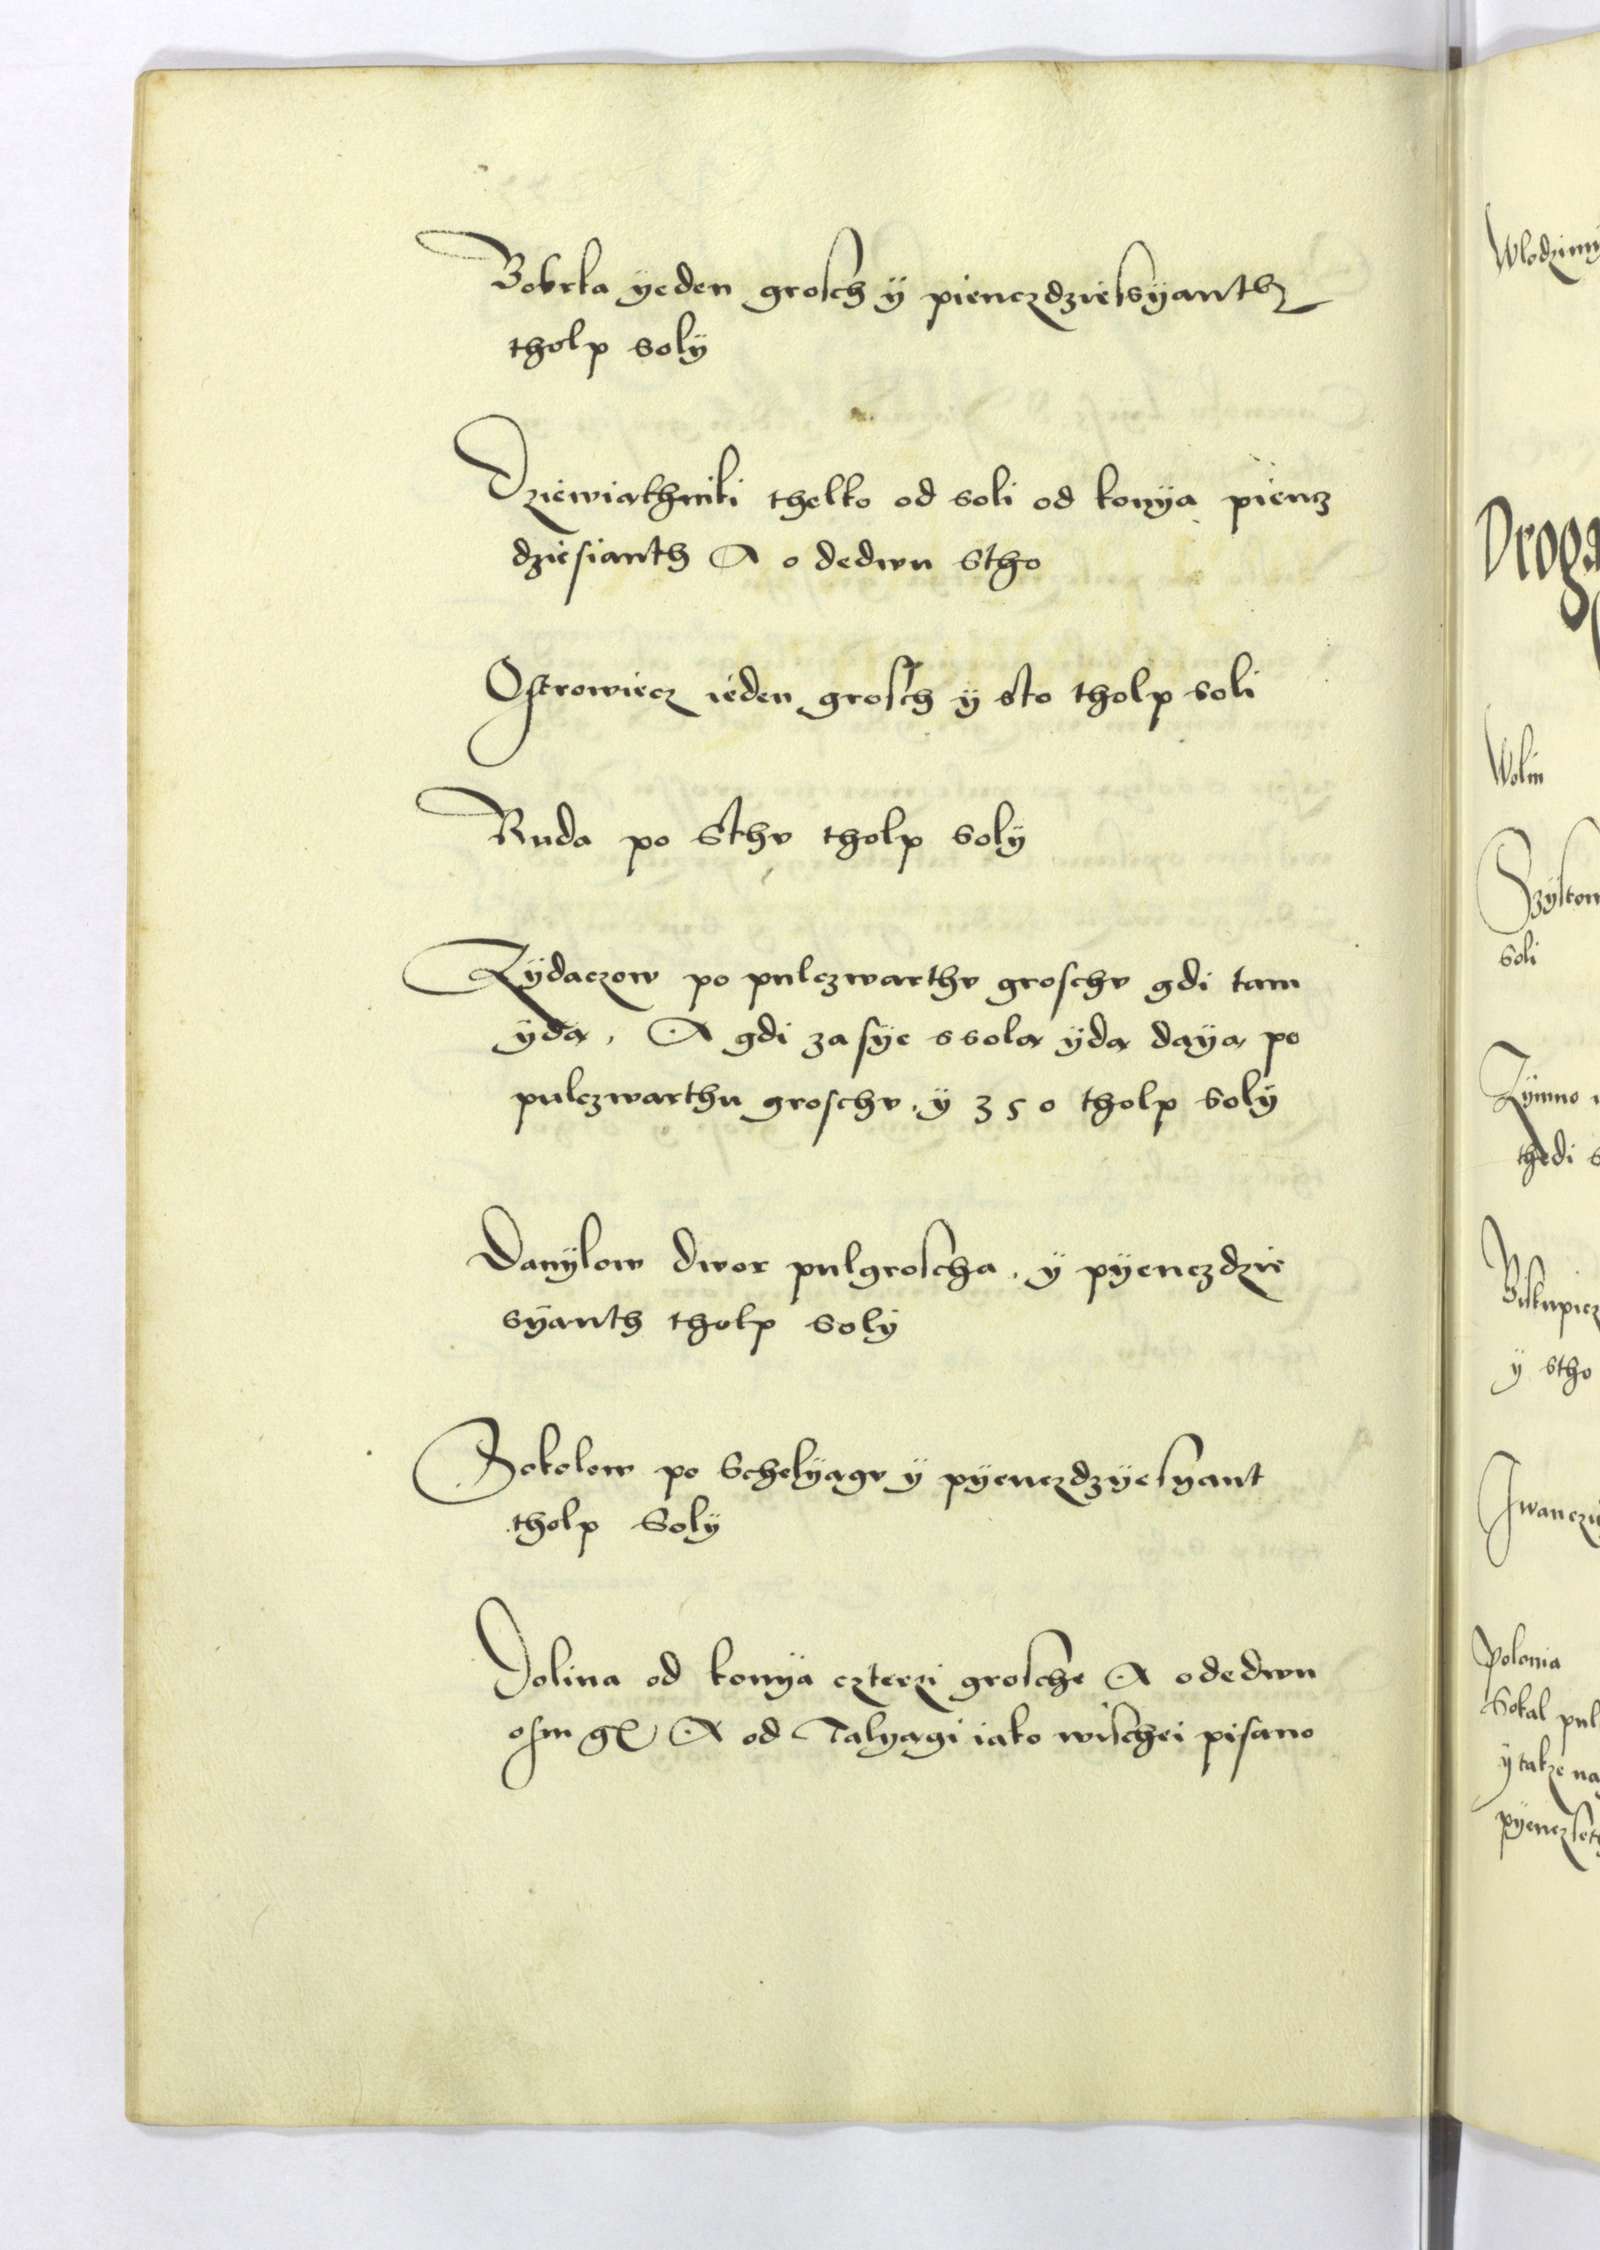 Bobrka yeden grosch ÿ pienczdziessÿanth
tholp solÿ
Dziewiathniki thelko od soli od konÿa piencz
dziesianth A o dedwu stho
Ostrowiecz ieden grosch ÿ sto tholp soli
Ruda po sthv tholp solÿ
Zÿdaczow po pulczwarthv groschv gdi tam
ÿda, A gdi zasÿe ssola ÿda daÿa po
pulczwarthu groschv ÿ 350 tholp solÿ
Danÿlow dwor pulgroscha ÿ pÿenczdzie
sÿanth tholp solÿ
Sokolow po schelÿagv ÿ pÿenczdzÿesÿant
tholp solÿ
Dolina od konÿa czterzi grosche A odedwu
osm gr A od Talyagi iako wischei pisano
Wlodzimi
Droga
Wolin
soli
Zÿmno
thedi s
Biskupicz
ÿ stho
Iwanczi
Polonia
Sokal pul
ÿ takze na
pÿenczset